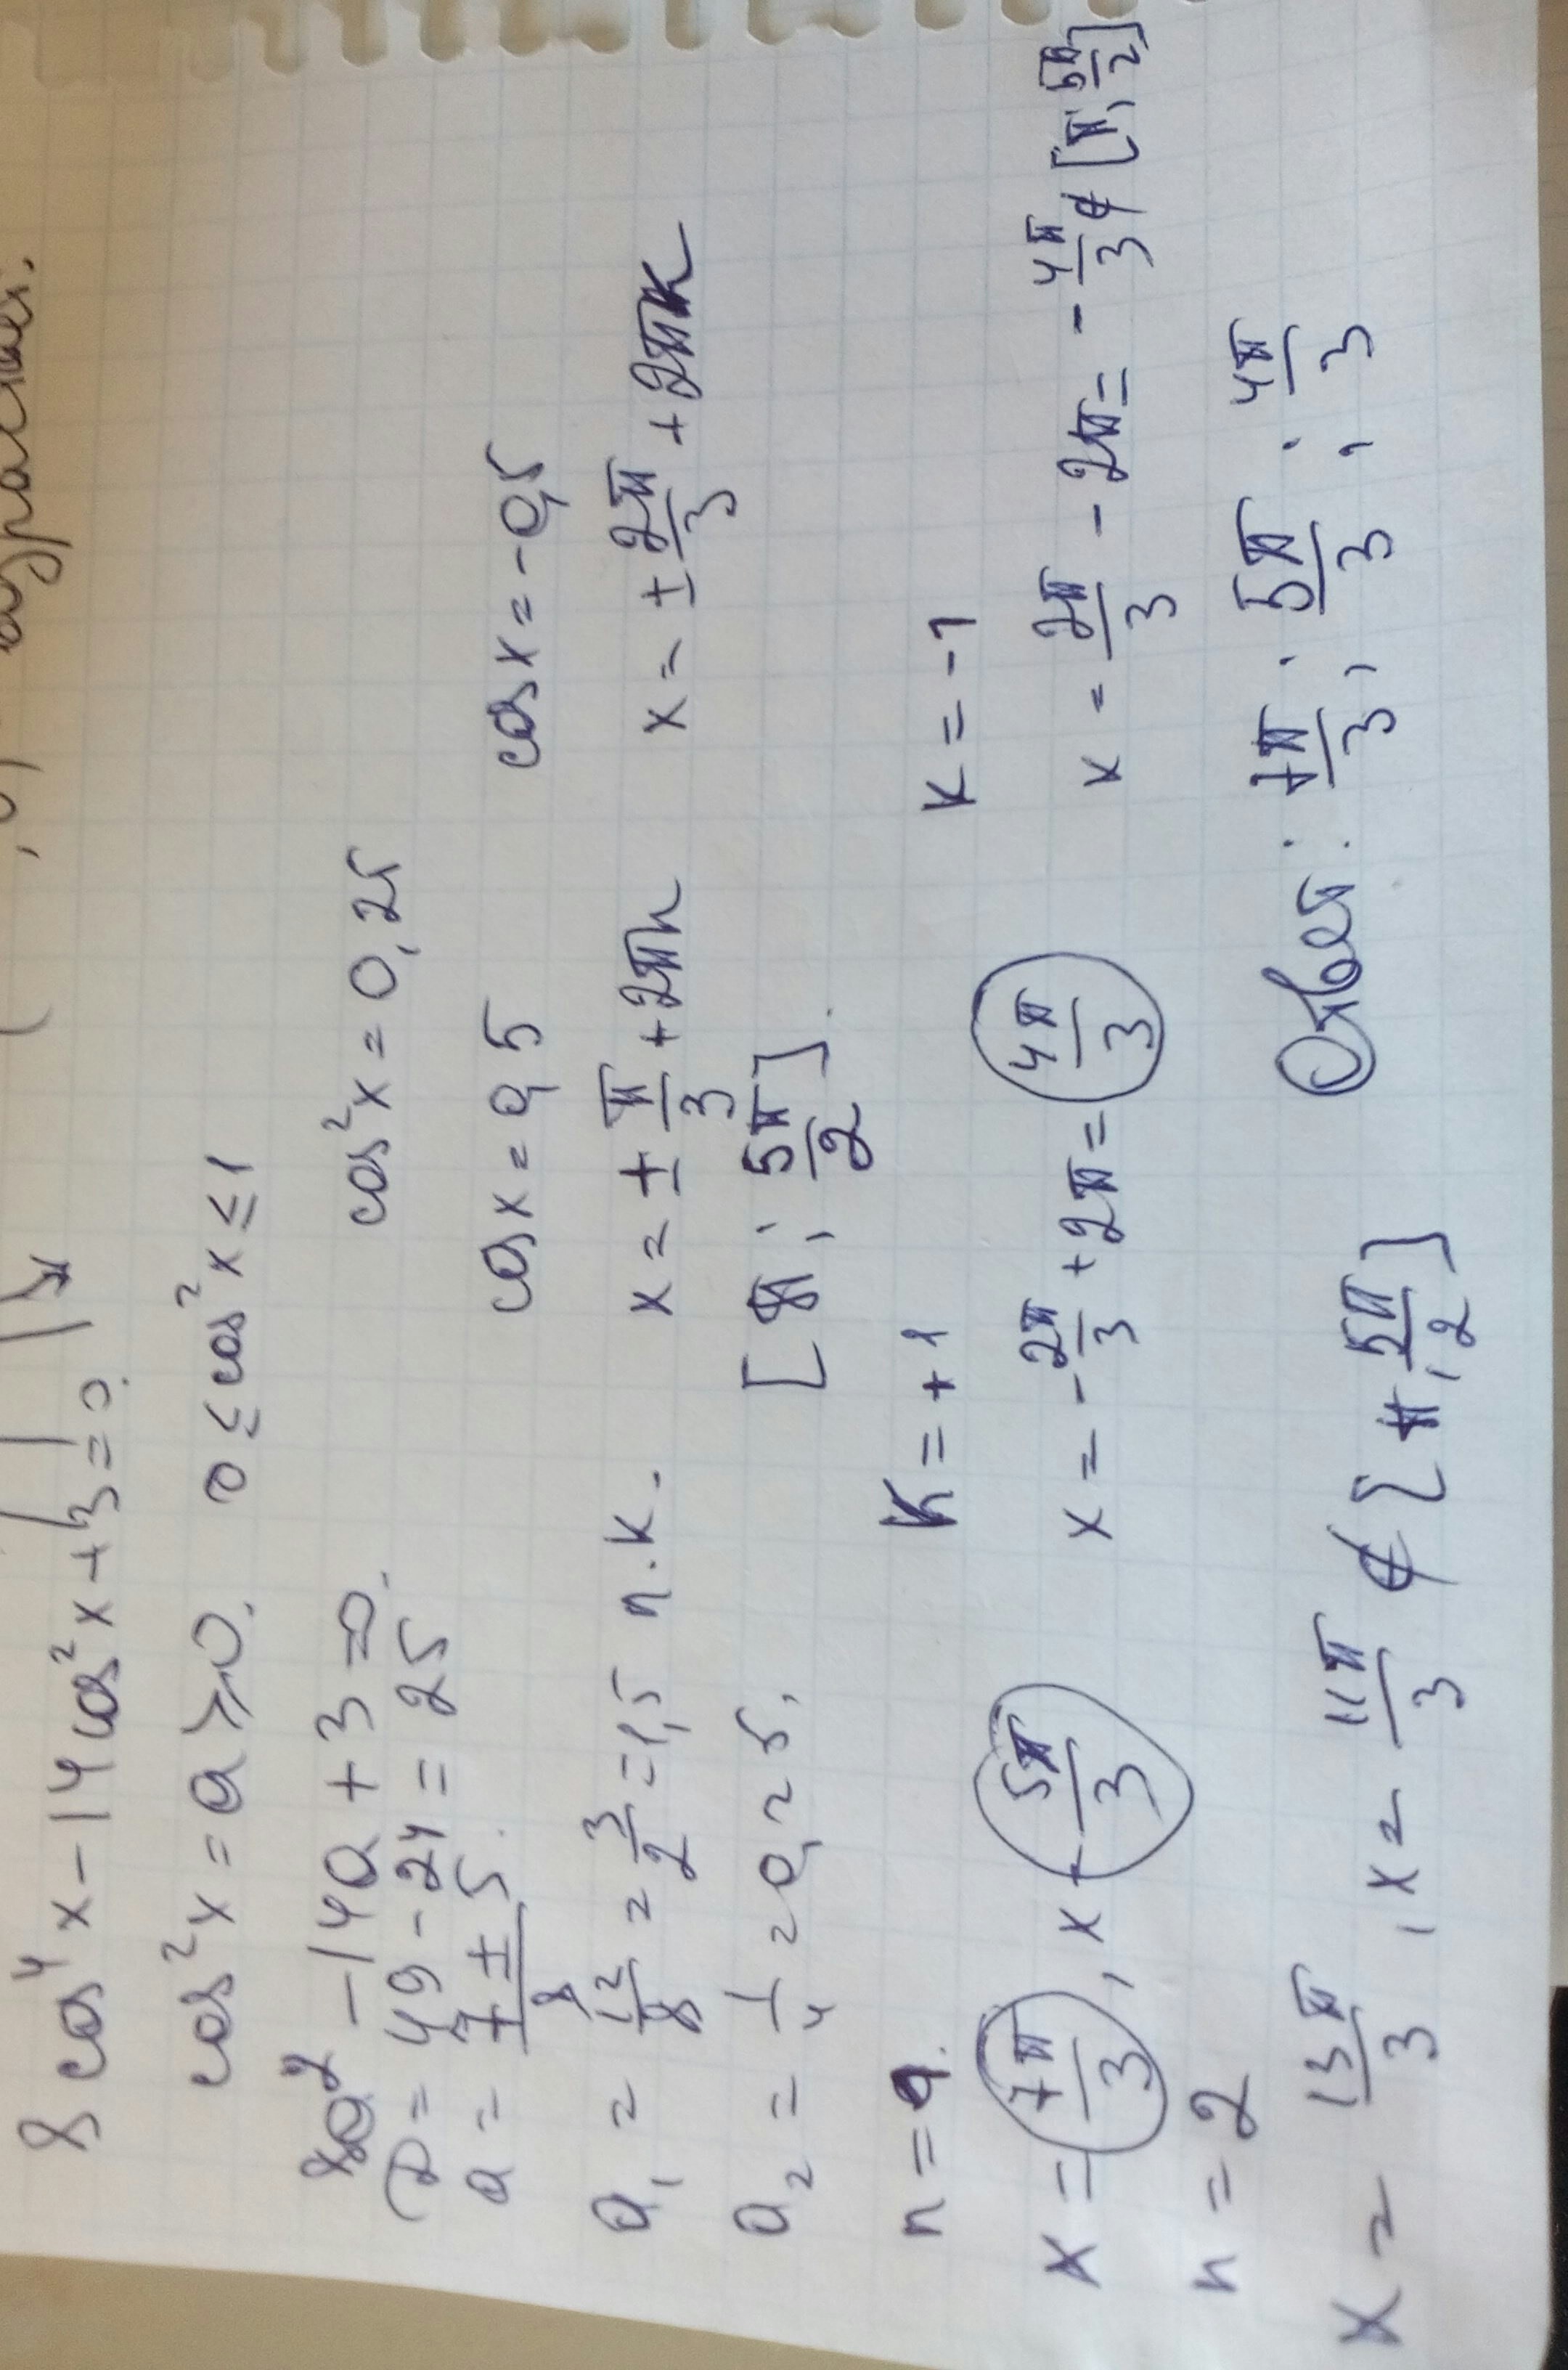 8 cos⁴x - 14 cos²x + 3 = 0.
cos²x = a ⩾ 0. 0 ≤ cos²x ≤ 1
8a² - 14a + 3 = 0.
D = 49 - 24 = 25
cos²x = 0,25
a = (7 ± 5)/8
a₁ = 12/8 = 3/2 = 1,5 п.к.
cos x = 0,5 cos x = -0,5
a₂ = 1/4 = 0,25.
x = ± π/3 + 2πn x = ± 2π/3 + 2πk
[π; 5π/2].
n = 1. k = +1 k = -1
x = 7π/3, x = 5π/3 x = -2π/3 + 2π = 4π/3 x = 2π/3 - 2π = -4π/3 ∉ [π; 5π/2]
n = 2
x = 13π/3, x = 11π/3 ∉ [π, 5π/2]
Ответ: 7π/3; 5π/3; 4π/3